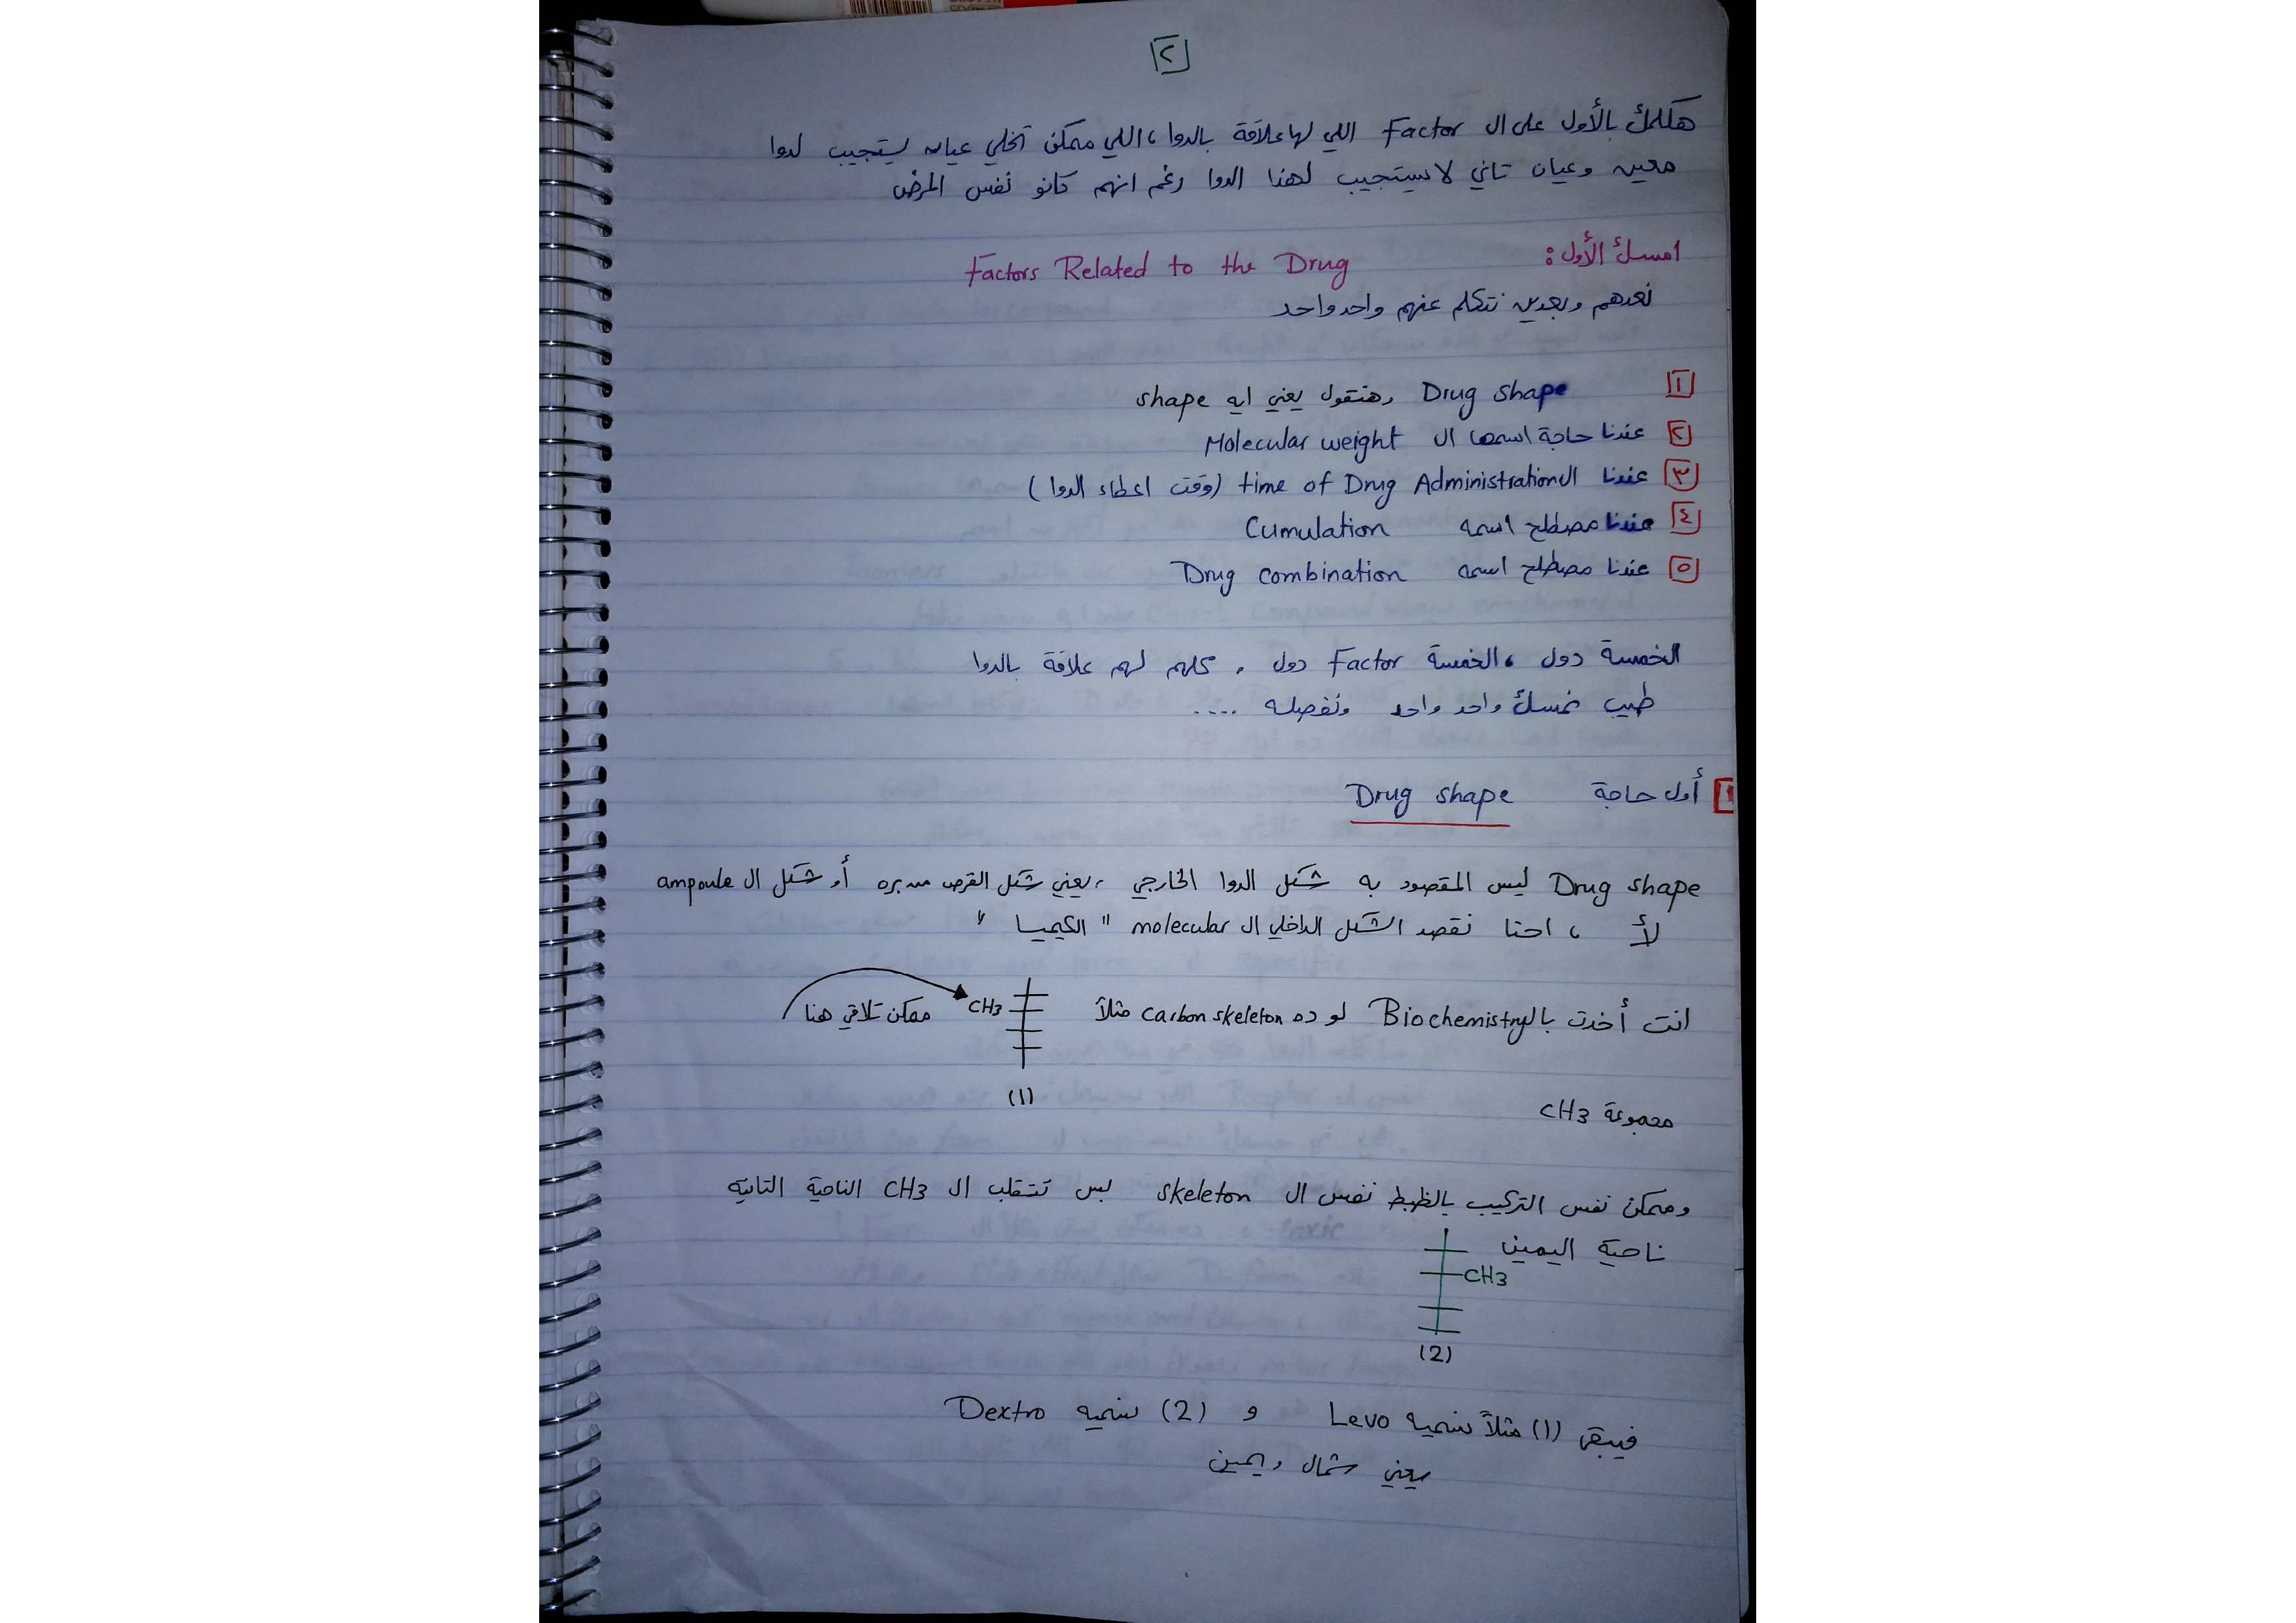 ٢
هكلمك بالأول على ال Factor اللي لها علاقة بالدوا ، اللي ممكن تخلي عيان يستجيب لدوا
معين وعيان تاني لا يستجيب لهذا الدوا رغم انهم كانو نفس المرض
امسك الأول : Factors Related to the Drug
نعدهم وبعدين نتكلم عنهم واحد واحد
١ Drug shape وهنقول يعني ايه shape
٢ عندنا حاجة اسمها ال Molecular weight
٣ عندنا ال time of Drug Administration (وقت اعطاء الدوا)
٤ عندنا مصطلح اسمه Cumulation
٥ عندنا مصطلح اسمه Drug combination
الخمسة دول ، الخمسة Factor دول ، كلهم لهم علاقة بالدوا
طيب نمسك واحد واحد ونفصله ....
١ أول حاجة Drug shape
Drug shape ليس المقصود به شكل الدوا الخارجي ، يعني شكل القرص من بره أو شكل ال ampoule
لأ ، احنا نقصد الشكل الداخلي ال molecular " الكيميا "
انت أخدت بال Biochemistry لو ده carbon skeleton مثلاً CH3 ممكن تلاقي هنا
(1)
مجموعة CH3
وممكن نفس التركيب بالظبط نفس ال skeleton بس تتقلب ال CH3 الناحية التانيه
ناحية اليمين
CH3
(2)
فيبقى (1) مثلاً نسميه Levo و (2) نسميه Dextro
يعني شمال ويمين